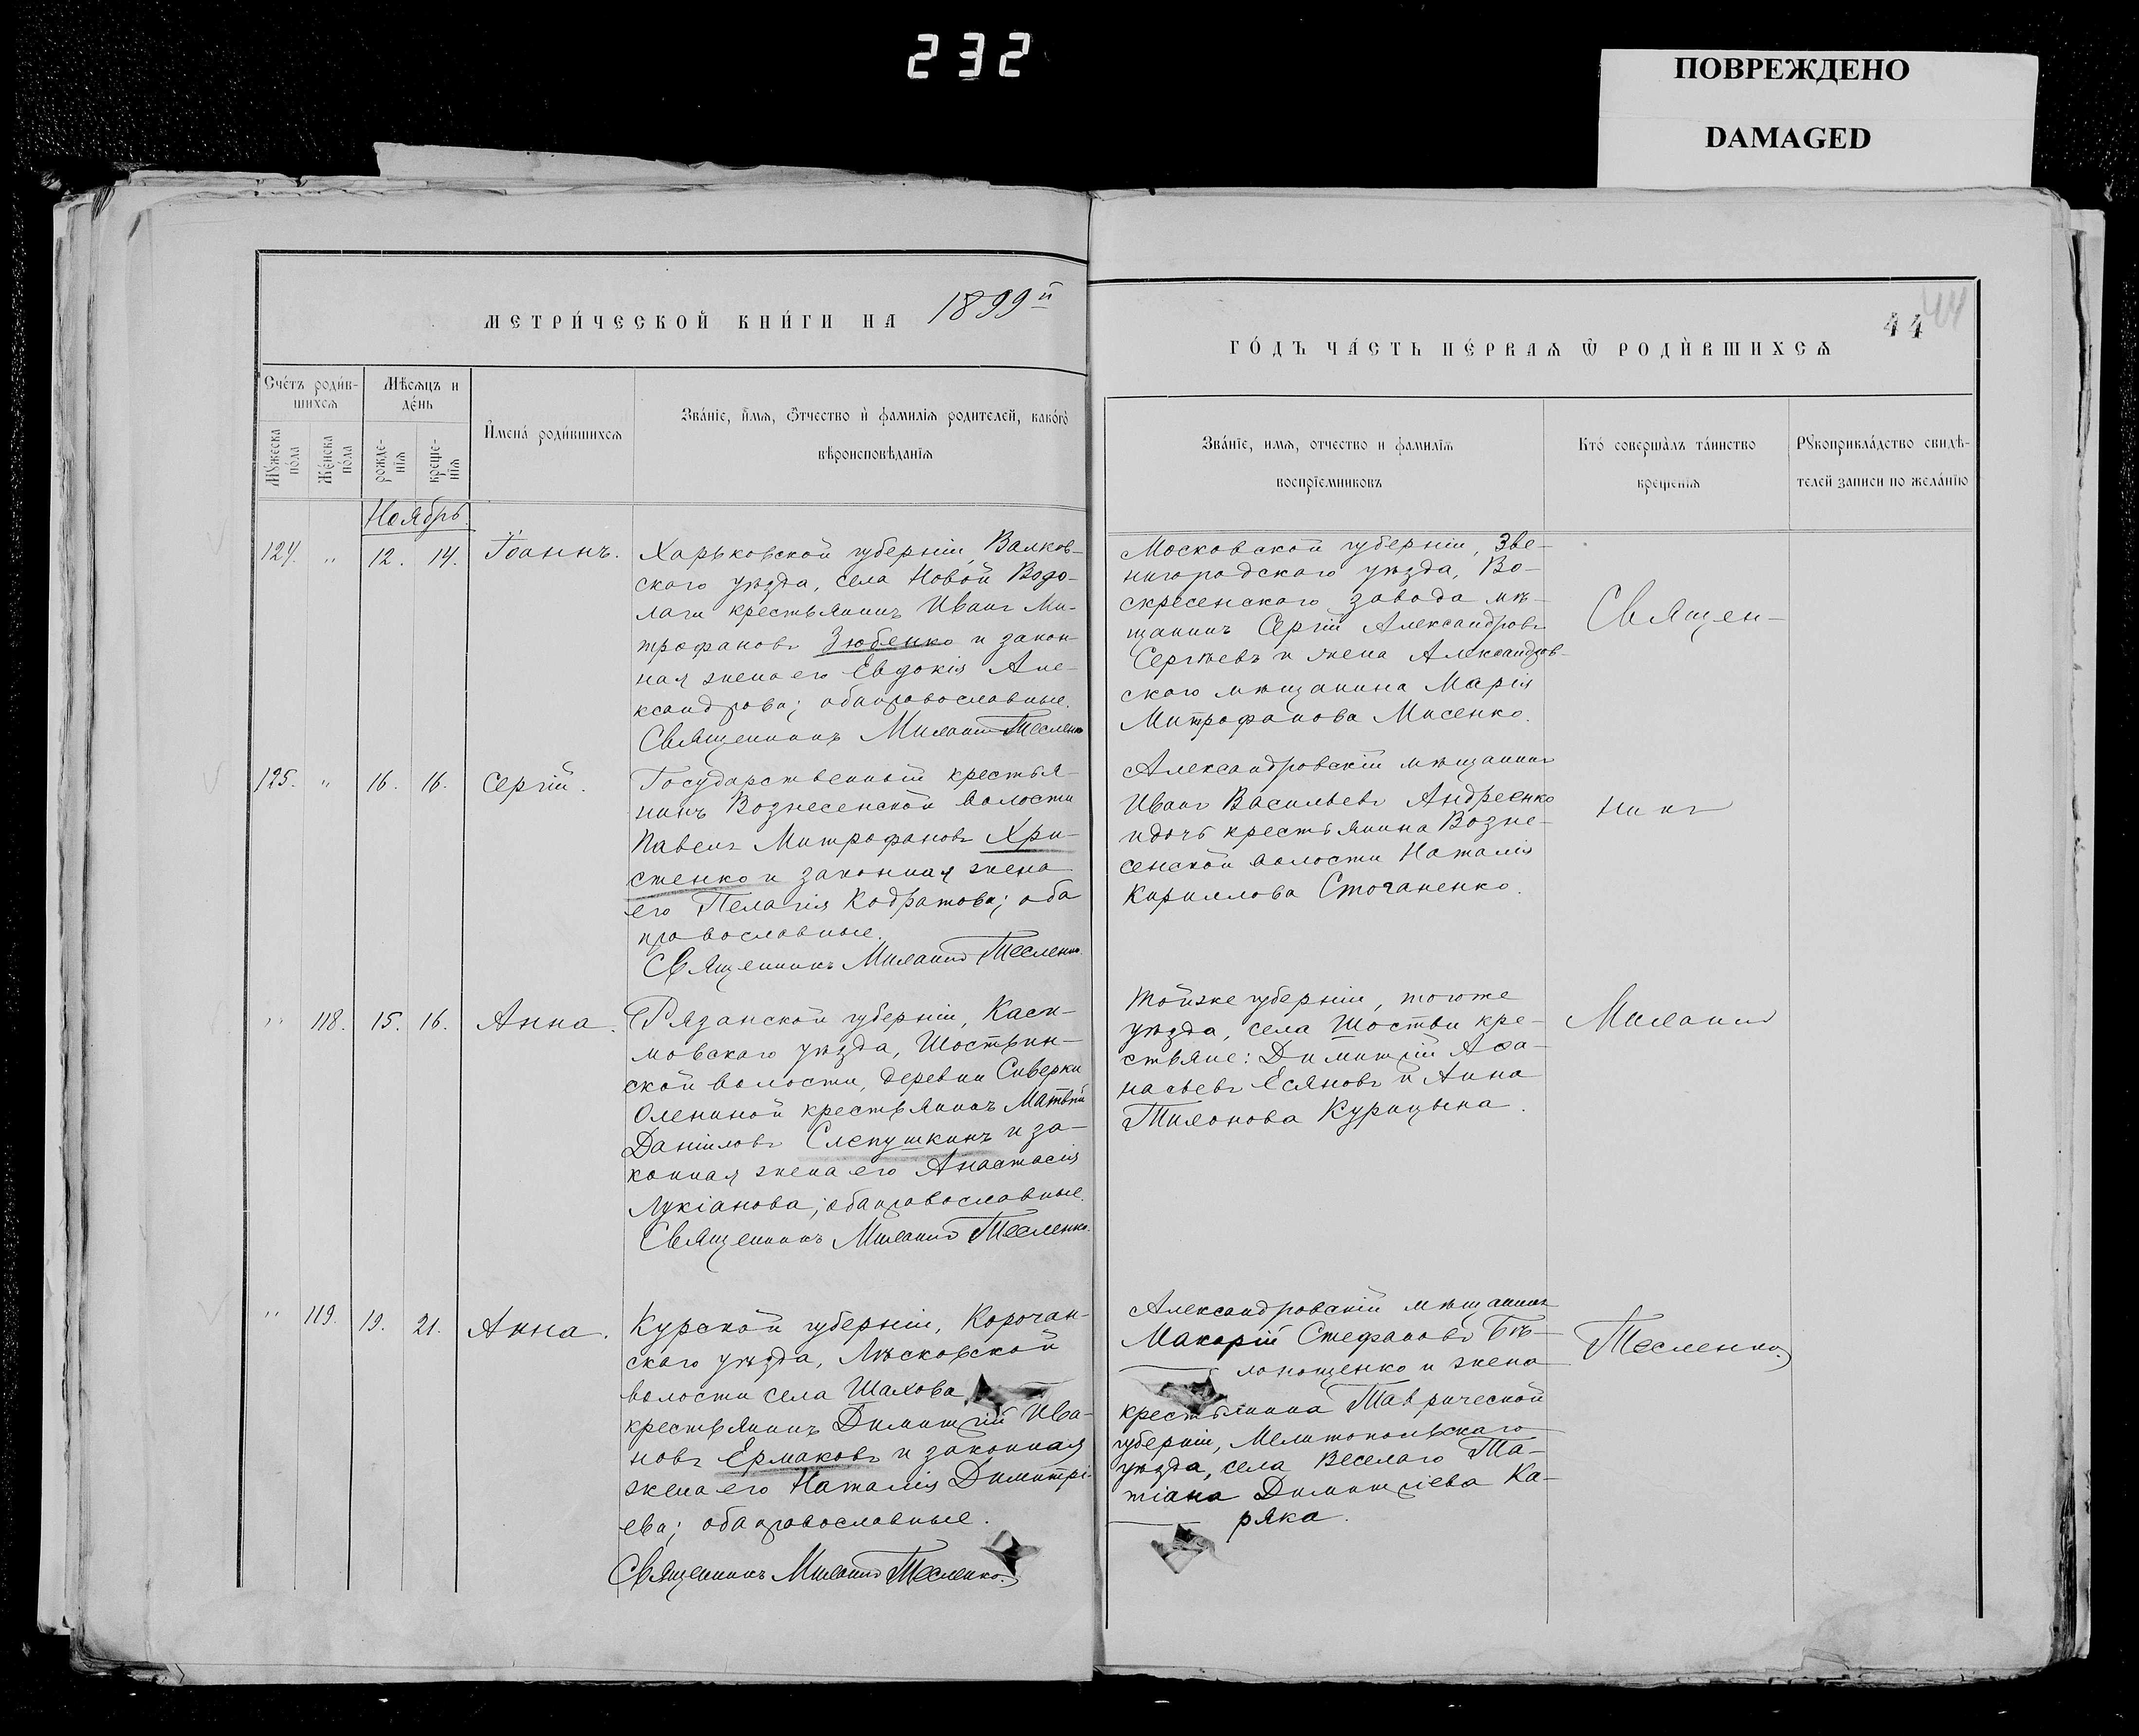 232
ПОВРЕЖДЕНО
DAMAGED
МЕТРИ́ЧЕСКОЙ КНИ́ГИ НА 1899й
44
44
ГО́ДЪ ЧА́СТЬ ПЕ́РВАѦ Ѡ РОДИ́ВШИХСѦ
Сче́тъ роди́в-
шихсѧ
Мѣсѧцъ и
де́нь
Мꙋ́жеска
по́ла
Же́нска
по́ла
рожде-
нїѧ
креще-
нїѧ
И҆мена̀ роди́вшихсѧ
Зва́нїе, и҆́мѧ, ѻ҆́тчество и҆ фамилїѧ родителей, како́гѡ
вѣроисповѣданїѧ
Зва́нїе, имѧ, отчество и фамилїѧ
воспрїемниковъ
Кто́ соверша̀лъ та́инство
крещенїѧ
Рꙋкоприкла́дство свидѣ-
телей записи по жела́нїю
Ноябрь.
124. „ 12. 14. Іоаннъ.
Харьковской губерніи, Валков-
скаго уѣзда, села Новой Водо-
лаги крестьянинъ Иванъ Ми-
трофановъ Зюбенко и закон-
ная жена его Евдокія Але-
ксандрова; оба православные.
Священникъ Милетій Тесленко
Московской губерніи, Зве-
нигородскаго уѣзда, Во-
скресенскаго завода мѣ-
щанинъ Сергій Александровъ
Сергѣевъ и жена Александров-
скаго мѣщанина Марія
Митрофанова Мисенко.
Священ-
125. „ 16. 16. Сергій.
Государственный крестья-
нинъ Вознесенской волости
Павелъ Митрофановъ Хри-
стенко и законная жена
его Пелагія Кодратова; оба
православные.
Священникъ Тесленко.
Александровскій мѣщанинъ
Иванъ Васильевъ Андреенко
и дочь крестьянина Возне-
сенской волости Наталія
Кириллова Стоганенко.
никъ
„ 118. 15. 16. Анна.
Рязанской губерніи, Каси-
мовскаго уѣзда, Шостьин-
ской волости, деревни Сиверки
Олениной крестьянинъ Матвѣй
Даніиловъ Слепушкинъ и за-
конная жена его Анастасія
Лукіанова; оба православные.
Священникъ Тесленко.
Той же губерніи, того же
уѣзда, села Шостьи кре-
стьяне: Димитрій Аѳа-
насьевъ Есяновъ и Анна
Тихонова Курицына.
„ 119. 19. 21. Анна.
Курской губерніи, Корочан-
скаго уѣзда, Лѣсковской
волости села Шахова
крестьянинъ Димитрій Ива-
новъ Ермаковъ и законная
жена его Наталія Димитрі-
ева; оба православные.
Священникъ Тесленко.
Александровскій мѣщанинъ
Макарій Стефановъ Бѣ-
лопощенко и жена
крестьянина Таврической
губерніи, Мелитопольскаго
уѣзда, села Веселаго Та-
тіана Димитріева Ка-
ряка.
Тесленко